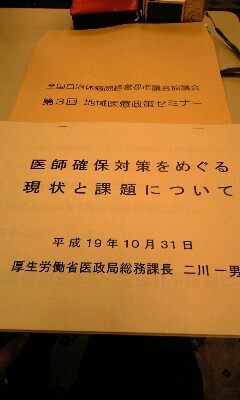 全国自治体病院経営都市議会協議会
第3回 地域医療政策セミナー
医師確保対策をめぐる
現状と課題について
平成19年10月31日
厚生労働省医政局総務課長 二川 一男